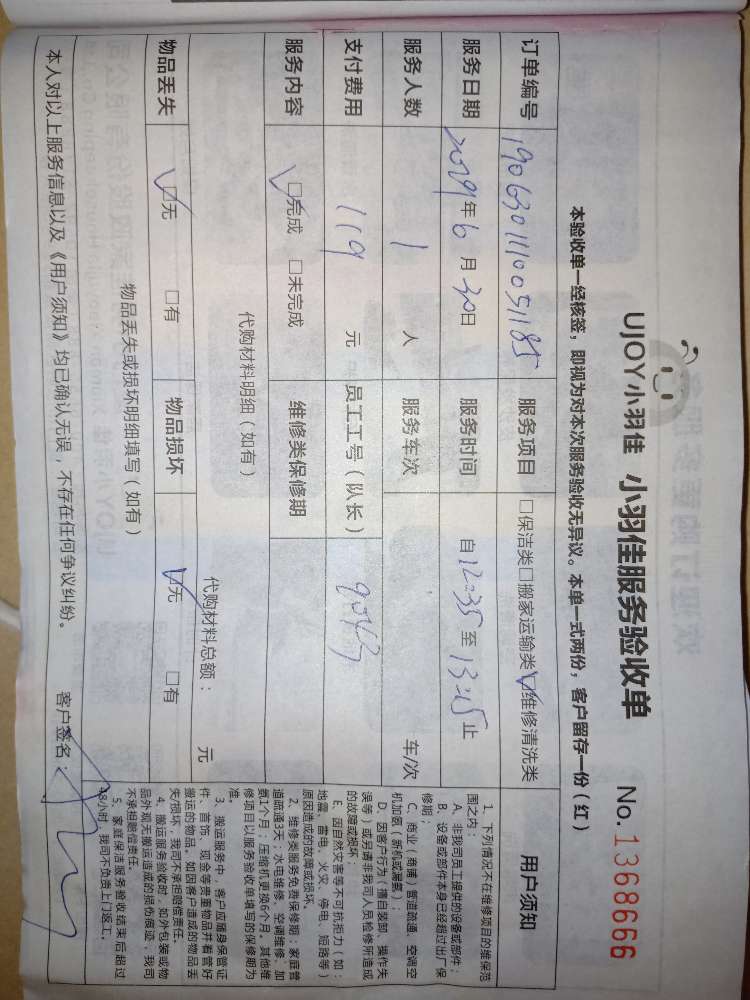 UJOY小羽佳 小羽佳服务验收单 No.1368666
本验收单一经核签，即视为对本次服务验收无异议。本单一式两份，客户留存一份（红）
订单编号 1906301110051185 服务项目 □保洁类□搬家运输类☑维修清洗类
服务日期 2019年6月30日 服务时间 自12:35至13:45止
服务人数 1 人 服务车次 车/次
支付费用 119 元 员工工号（队长） 9043
服务内容 ☑完成 □未完成 维修类保修期
代购材料明细（如有）
代购材料总额： 元
物品丢失 ☑无 □有 物品损坏 ☑无 □有
物品丢失或损坏明细填写（如有）
本人对以上服务信息以及《用户须知》均已确认无误，不存在任何争议纠纷。 客户签名：
用户须知
1、下列情况不在维修项目的维保范
围之内：
A、非我司员工提供的设备或部件；
B、设备或部件本身已经超过出厂保
修期；
C、商业（商铺）管道疏通、空调空
机加氨（新机或漏氨）；
D、因客户行为（擅自装卸、操作失
误等）或另请非我司人员检修所造成
的故障或损坏；
E、因自然灾害等不可抗拒力（如：
地震、雷电、火灾、停电、短路等）
原因造成的故障或损坏。
2、维修类服务免费保修期：家庭管
道疏通3天；水电维修、空调维修、加
氨1个月；压缩机更换6个月。其他维
修项目以服务验收单填写的保修期为
准。
3、搬运服务中，客户应随身保管证
件、首饰、现金等贵重物品并看管好
搬运的物品。如因客户造成的物品丢
失/损坏，我司不承担赔偿责任。
4、搬运服务验收时，如外包装或物
品外观无搬运造成的损伤痕迹，我司
不承担赔偿责任。
5、家庭保洁服务验收结束后超过
48小时，我司不负责上门返工。